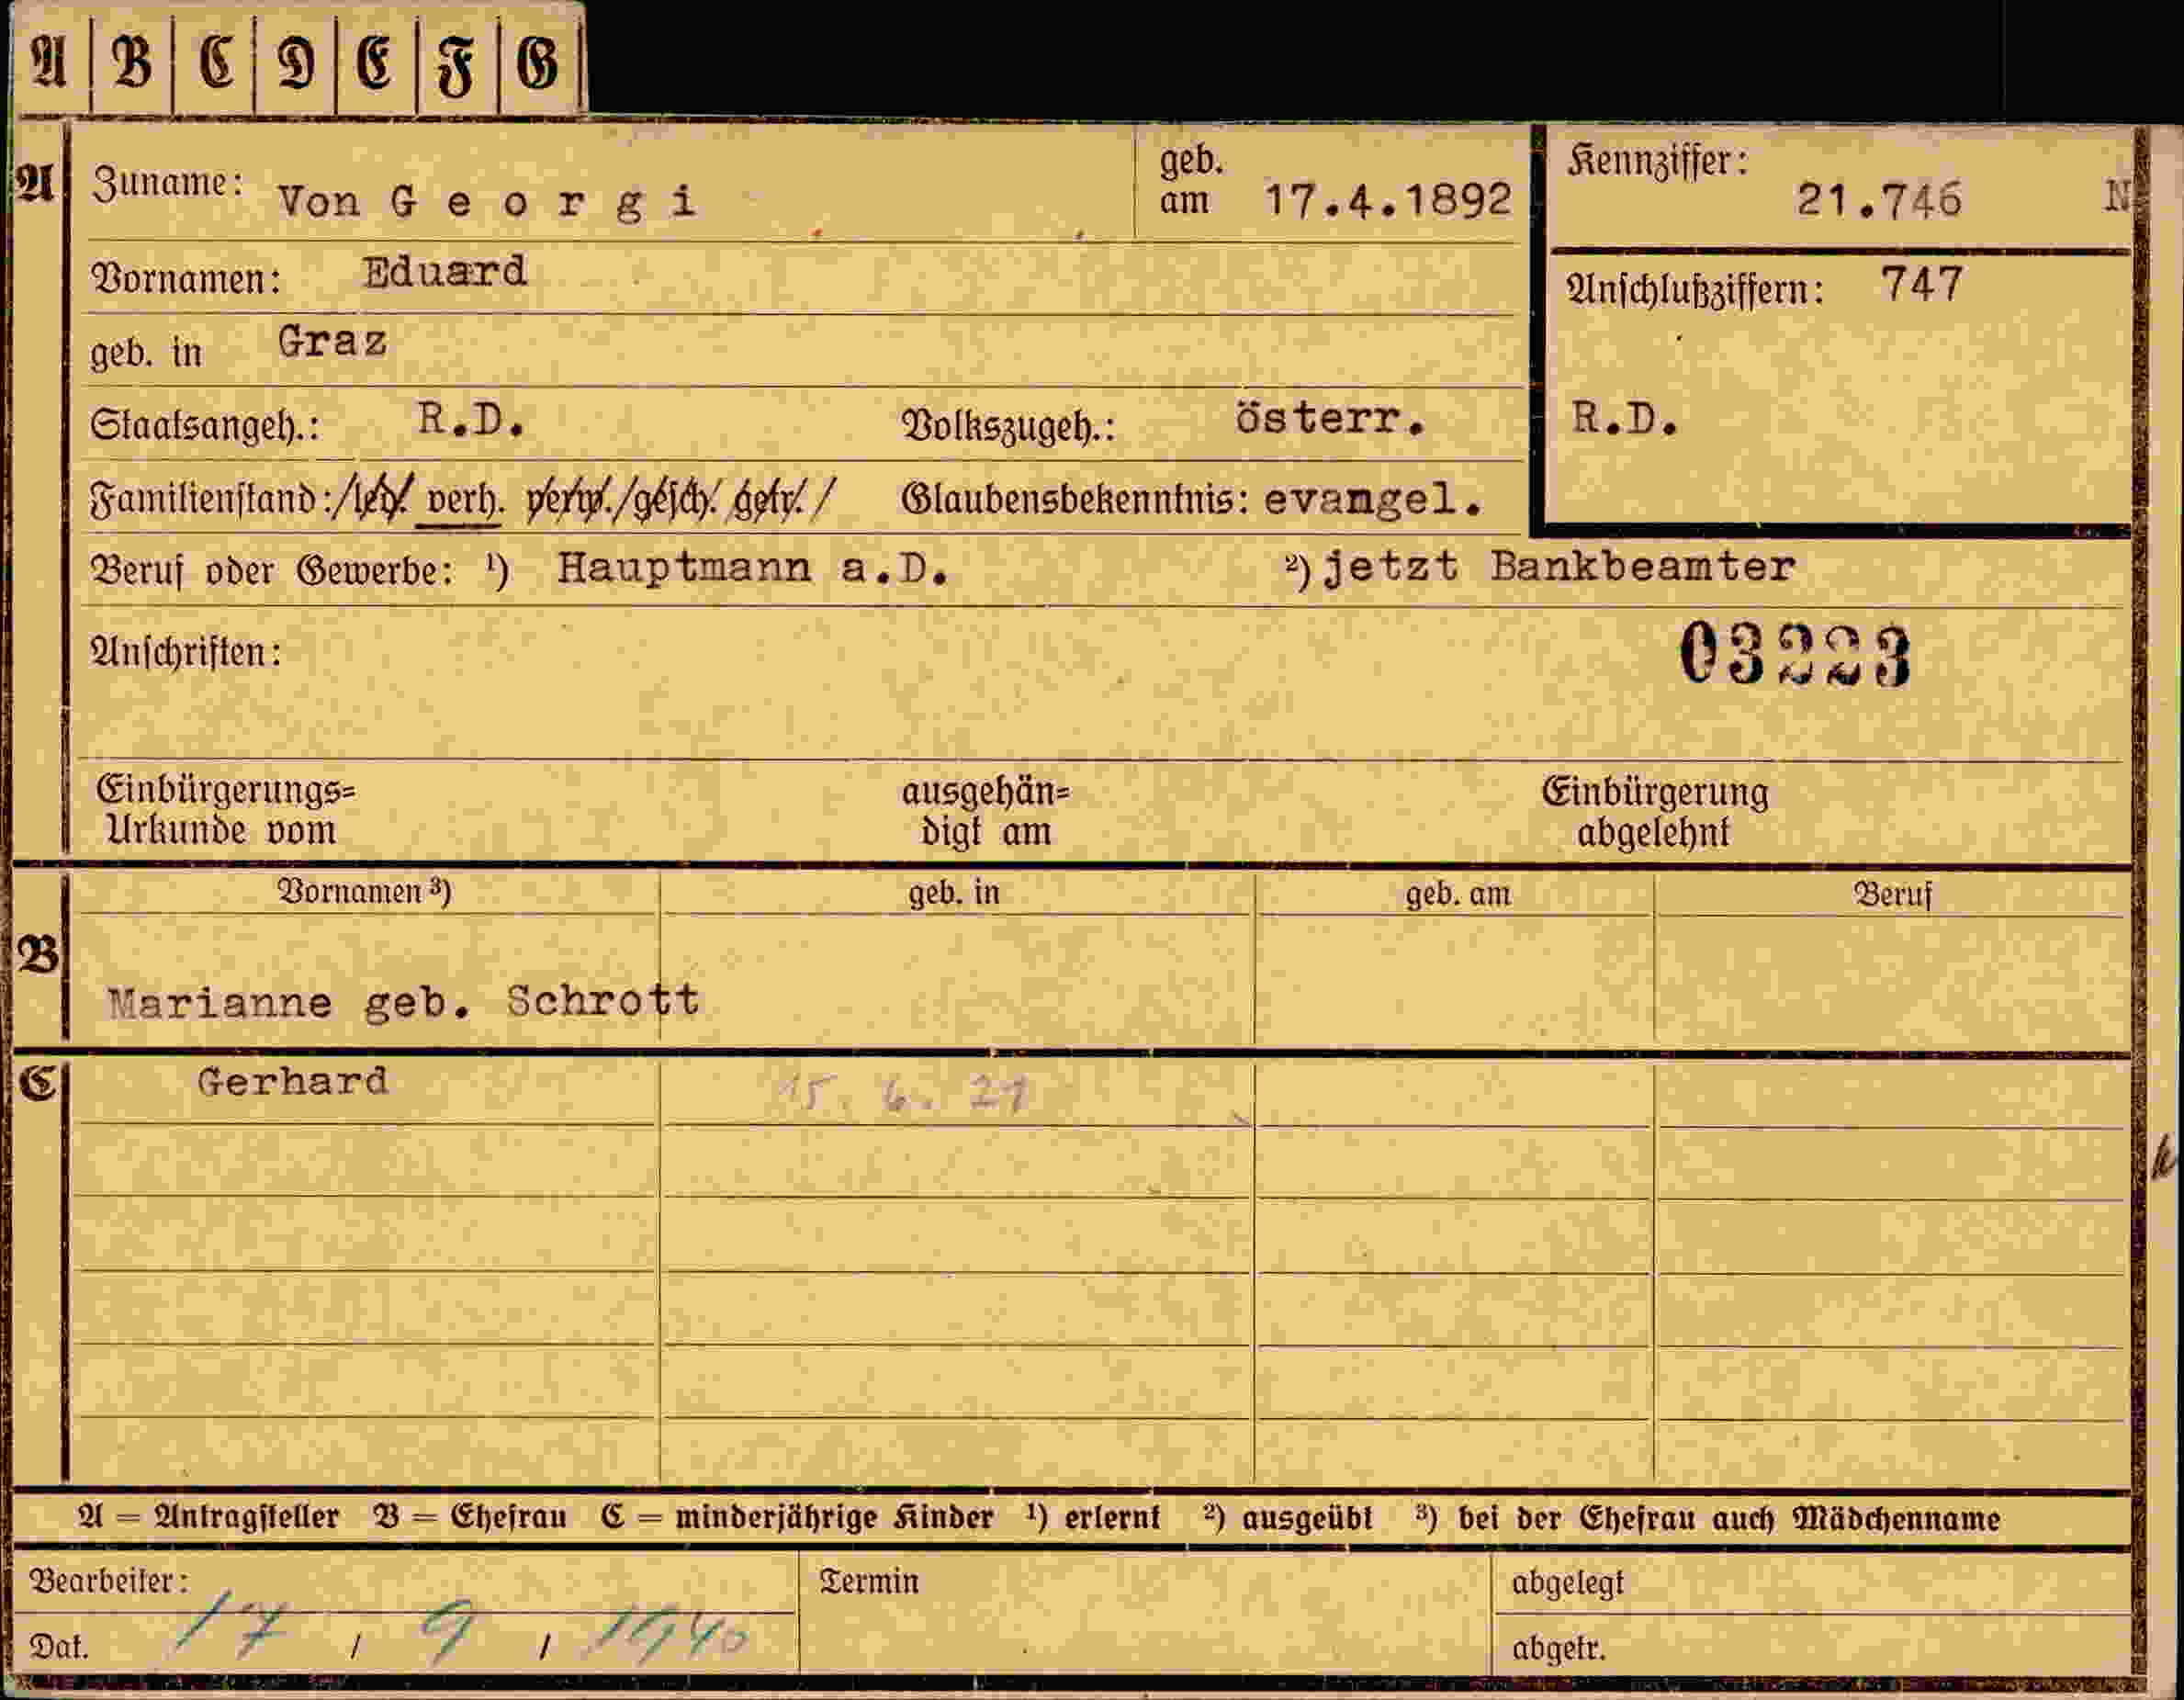 A B C D E F G
A Zuname: Von G e o r g i geb. am 17.4.1892 Kennziffer: 21.746 N
Vornamen: Eduard Anschlußziffern: 747
geb. in Graz
Staatsangeh.: R.D. Volkszugeh.: österr. R.D.
Familienstand: /led./ verh. verw./gesch./getr./ Glaubensbekenntnis: evangel.
Beruf oder Gewerbe: ¹) Hauptmann a.D. ²) jetzt Bankbeamter
Anschriften: 03223
Einbürgerungs= ausgehän= Einbürgerung
Urkunde vom digt am abgelehnt
Vornamen ³) geb. in geb. am Beruf
B
Marianne geb. Schrott
C Gerhard 15. 6. 21
A = Antragsteller B = Ehefrau C = minderjährige Kinder ¹) erlernt ²) ausgeübt ³) bei der Ehefrau auch Mädchenname
Bearbeiter: Termin abgelegt
Dat. 17 / 9 / 1940 abgetr.